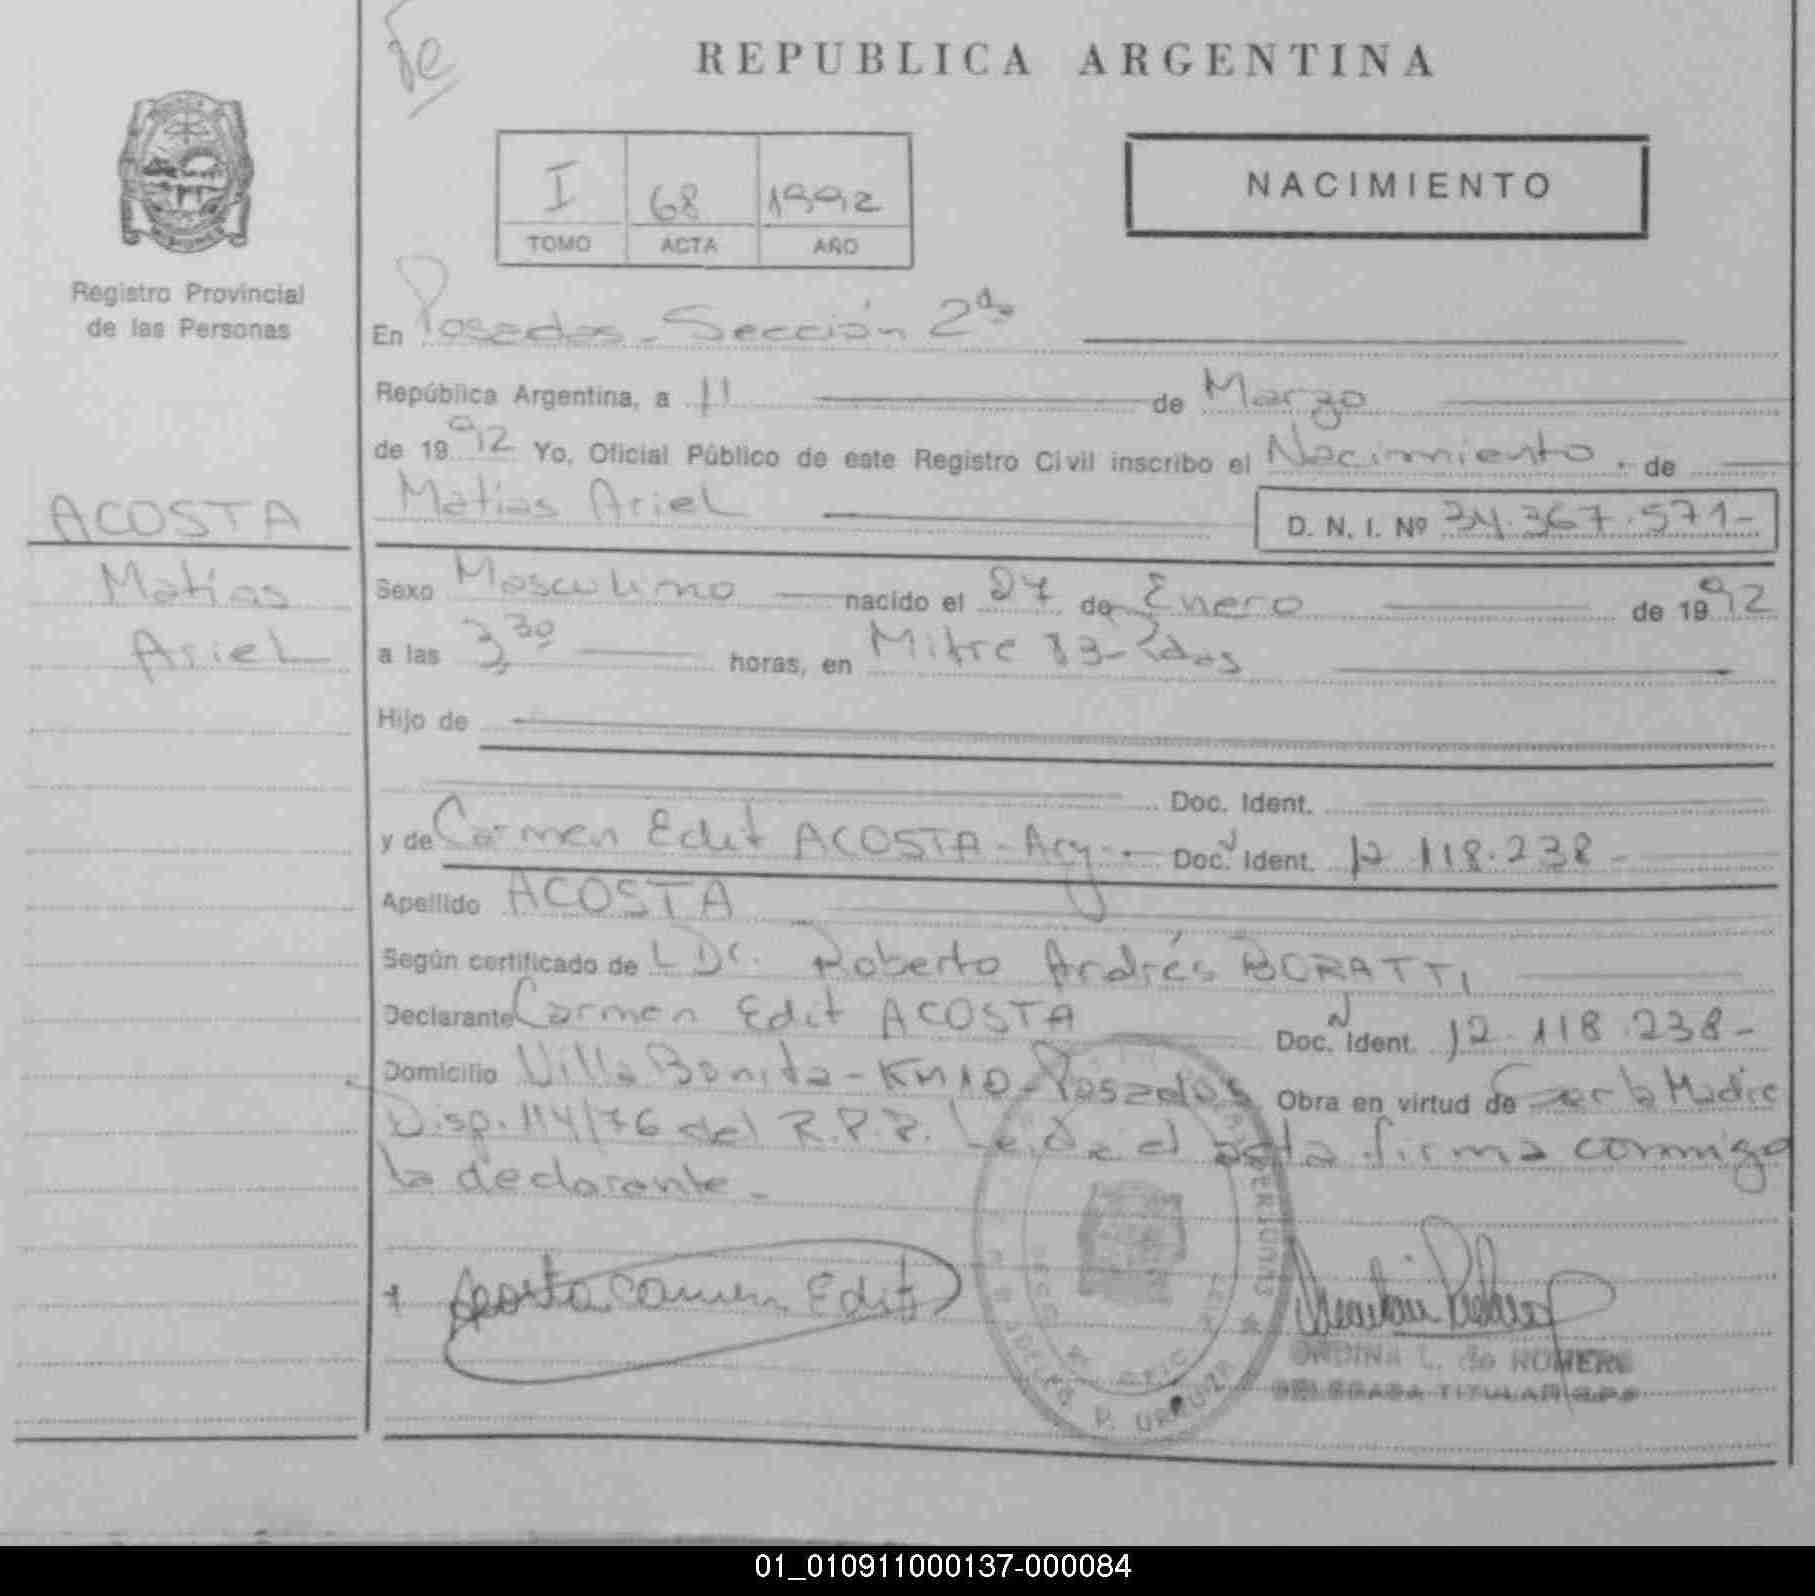 REPUBLICA ARGENTINA
I 68 1992
TOMO ACTA AÑO
NACIMIENTO
Registro Provincial
de las Personas
En Posadas - Sección 2da
República Argentina, a 11 de Marzo
de 1992 Yo, Oficial Público de este Registro Civil inscribo el Nacimiento, de
Matias Ariel D. N. I. Nº 34.367.571-
ACOSTA
Matías
Ariel
Sexo Masculino nacido el 27 de Enero de 1992
a las 3,30 horas, en Mitre 83-Pdas
Hijo de
Doc. Ident.
y de Carmen Edit ACOSTA - Arg. - Doc. Ident. 12.118.238-
Apellido ACOSTA
Según certificado de Dr. Roberto Andrés BORATTI
Declarante Carmen Edit ACOSTA Doc. Ident. 12.118.238-
Domicilio Villa Bonita - KM 10 - Posadas Obra en virtud de Ser la Madre
Disp. 114/76 del R.P.P. Leída el acta firma conmigo
la declarante.-
Acosta Carmen Edit
L. de ROMERO
DELEGADA TITULAR
01_010911000137-000084